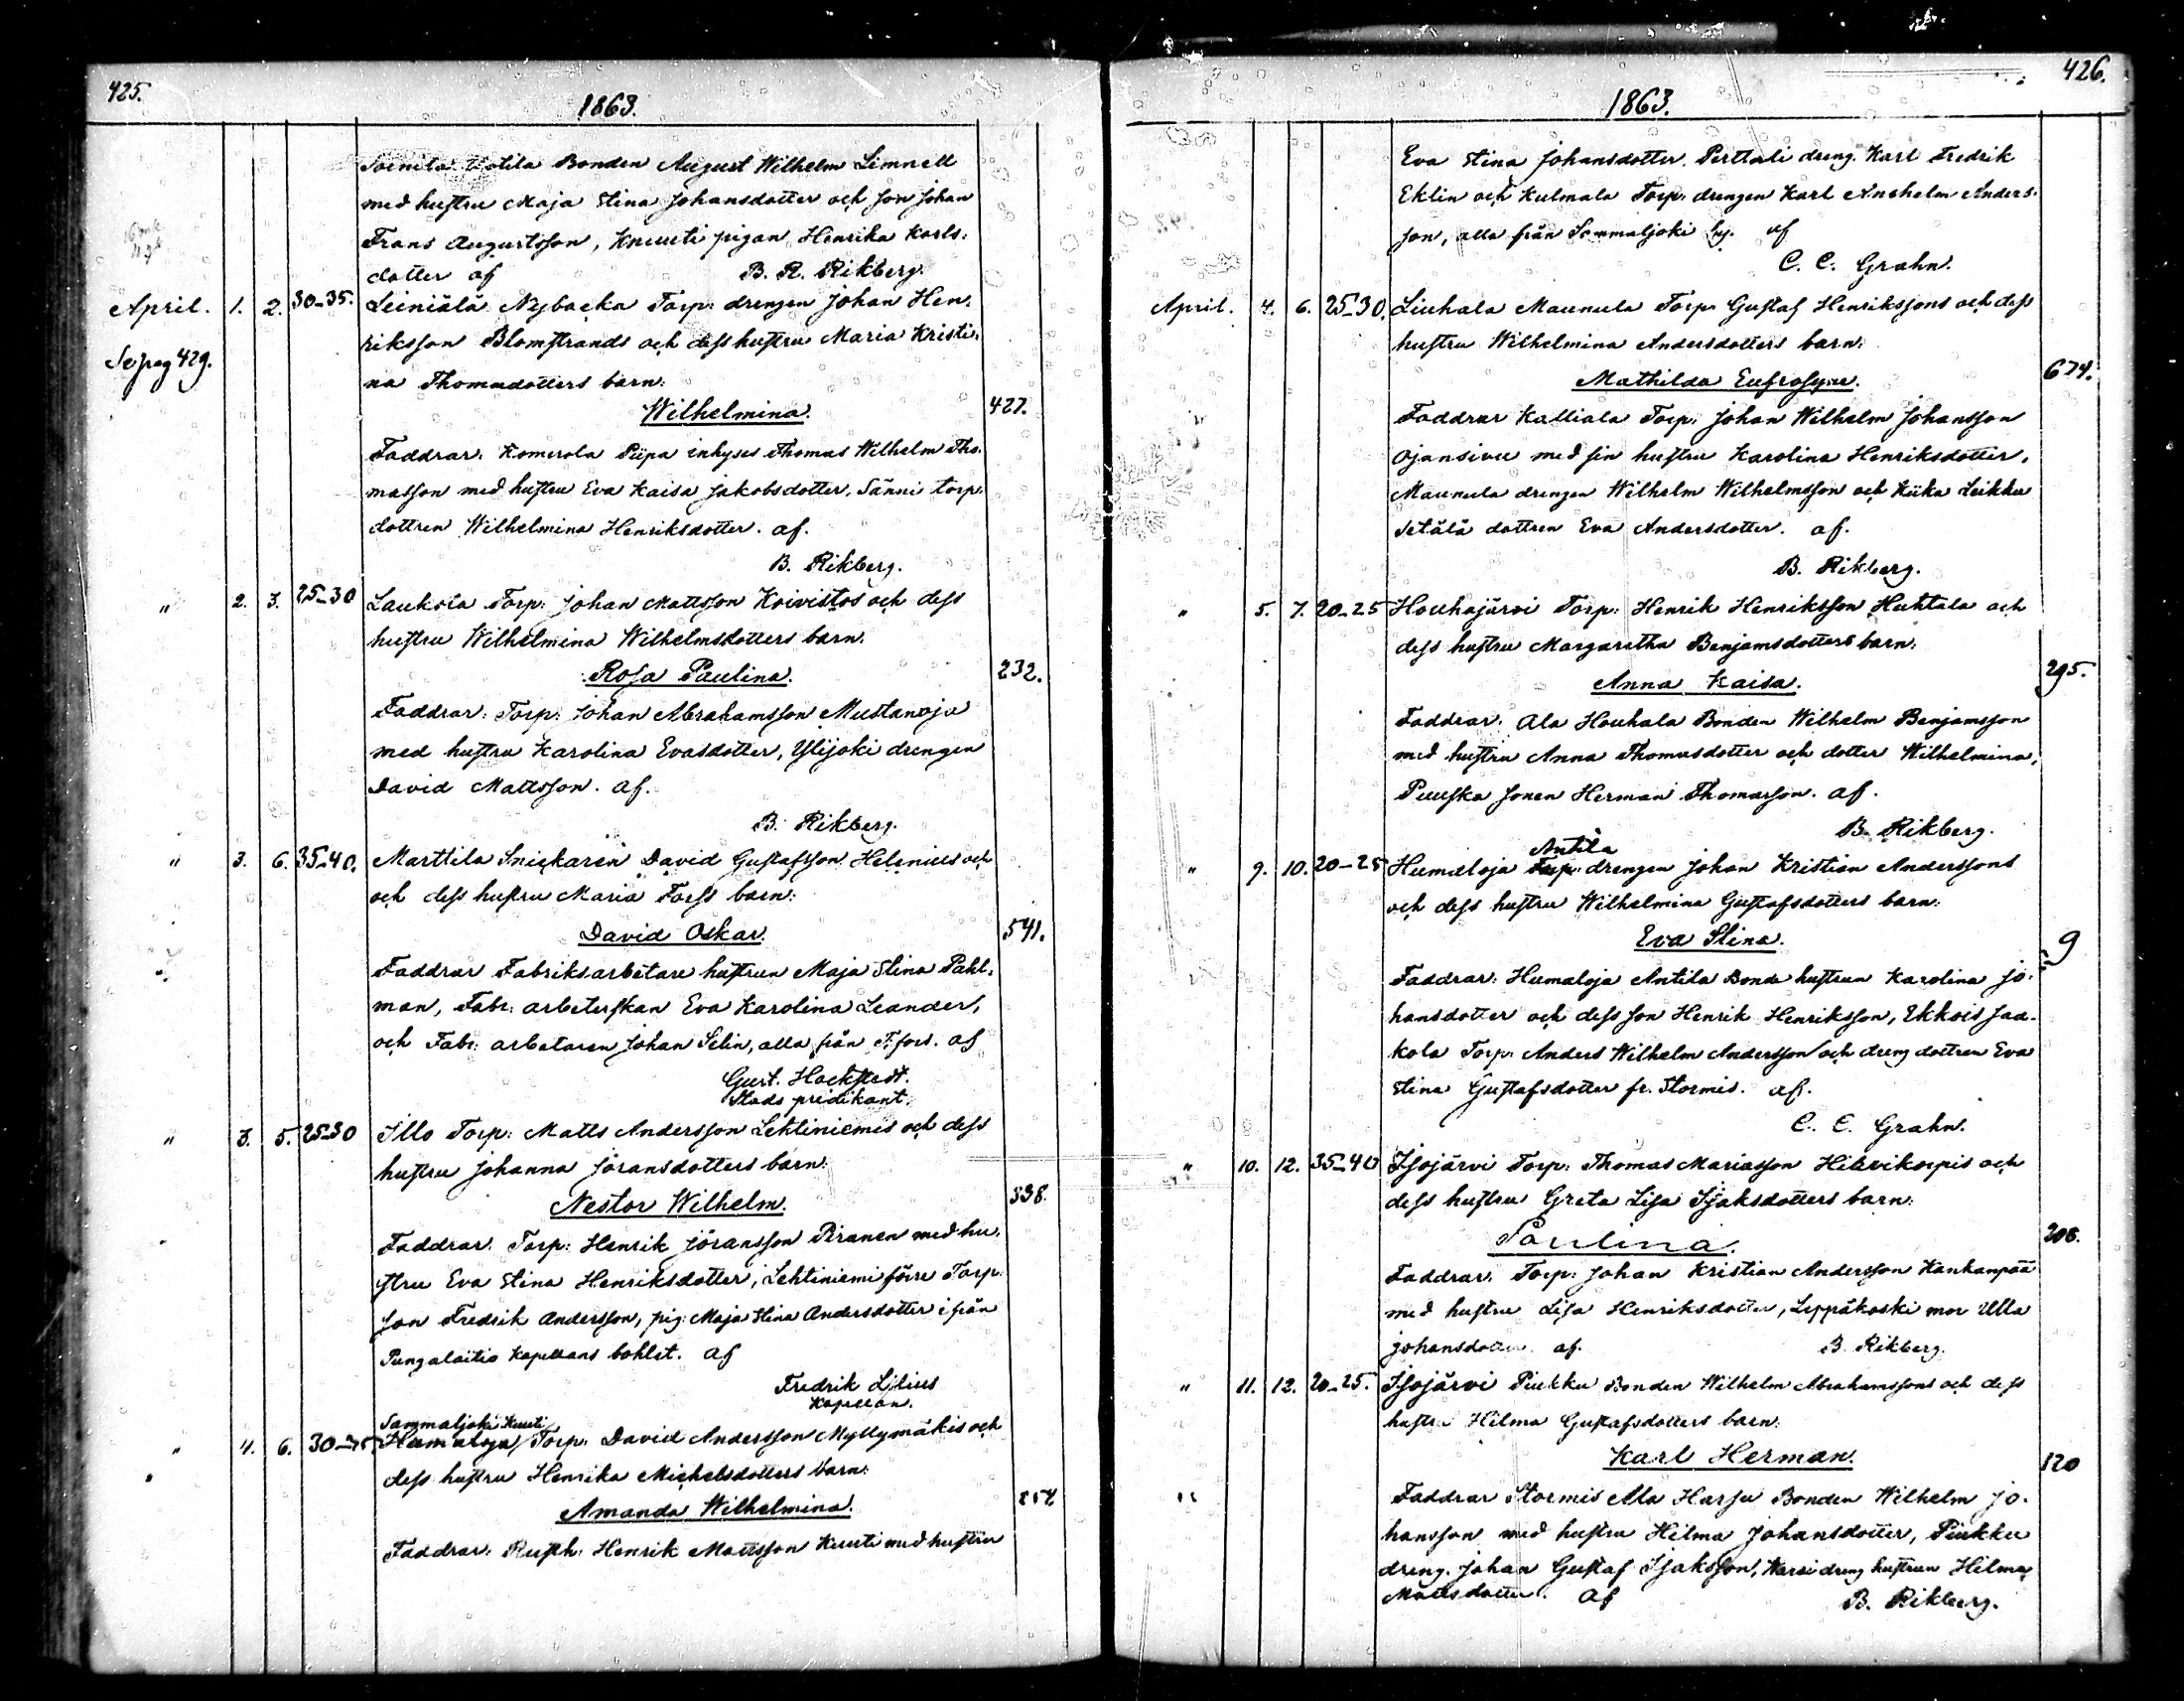 425.
1863.
Bonden August Wilhelm Limnell
med hustru Maja Stina Johansdotter och son Johan
Frans Augustsson, Knuuti pigan Henrika Karls-
dotter af B. R. Rikberg.
April. 1. 2. 30-35. Leiniälä Nybacka Torp: drengen Johan Hen-
riksson Blomstrands och dess hustru Maria Kristi-
Se pag 429.
na Thomasdotters barn:
Wilhelmina. 427.
Faddrar: Komerola Piipa inhyses Thomas Wilhelm Tho-
masson med hustru Eva Kaisa Jakobsdotter, Sänni torp.
dottren Wilhelmina Henriksdotter. af.
B. Rikberg.
" 2. 3. 25-30 Laukola Torp: Johan Mattsson Koivistos och dess
hustru Wilhelmina Wilhelmsdotters barn.
Rosa Paulina. 232.
Faddrar: Torp: Johan Abrahamsson Mustanoja
med hustru Karolina Evasdotter, Ylijoki drengen
David Mattsson. af.
B. Rikberg.
" 3. 6. 35-40. Marttila Snickaren David Gustafsson Helenius och
och dess hustru Maria Forss barn:
David Oskar. 541.
Faddrar Fabriksarbetare hustrun Maja Stina Pahl-
man, Fabr: arbeterskan Eva Karolina Leander,
och Fabr: arbetaren Johan Selin, alla från T.fors. af
Gust. Hockstedt.
Stads predikant.
" 3. 5. 25-30 Illo Torp: Matts Andersson Lehtiniemis och dess
hustru Johanna Jöransdotters barn:
Nestor Wilhelm. 338.
Faddrar: Torp: Henrik Jöransson Piranen med hu-
stru Eva Stina Henriksdotter, Lehtiniemi förre Torp:
son Fredrik Andersson, pig: Maja Stina Andersdotter ifrån
Pungalaitio Kapellans bohlet. af
Fredrik Lilius
Kapellan.
Sammaljoki Kuuti
" 4. 6. 30-35. Humaloja Torp: David Andersson Myllymäkis och
dess hustru Henrika Michelsdotters barn:
Amanda Wilhelmina. 854
Faddrar: Rusth: Henrik Mattsson Kuuti med hustru
426.
1863.
Eva Stina Johansdotter. Perttuli dreng. Karl Fredrik
Eklin och Kulmala Torp: drengen Karl Anshelm Anders-
son, alla från Sammaljoki by. af
C. E. Grahn.
April. 4. 6. 25-30. Liuhala Maunula Torp: Gustaf Henrikssons och dess
hustru Wilhelmina Andersdotters barn:
Mathilda Eufrosyne. 674.
Faddrar Kalliala Torp: Johan Wilhelm Johansson
Ojansivu med sin hustru Karolina Henriksdotter,
Maunula drengen Wilhelm Wilhelmsson och Kiika Leikku
Setälä dottren Eva Andersdotter. af.
B. Rikberg.
" 5. 7. 20-25 Houhajärvi Torp: Henrik Henriksson Huhtala och
dess hustru Margaretha Benjamsdotters barn:
Anna Kaisa. 295.
Faddrar: Ala Houhala Bonden Wilhelm Benjamsson
med hustru Anna Thomasdotter och dotter Wilhelmina,
Puuska sonen Herman Thomasson. af.
B. Rikberg.
Antila
" 9. 10. 20-25 Humaloja Torp: drengen Johan Kristian Anderssons
och dess hustru Wilhelmina Gustafsdotters barn:
Eva Stina. 9
Faddrar: Humaloja Antila Bonde hustrun Karolina Jo-
hansdotter och dess son Henrik Henriksson, Ekkois Jaa-
kola Torp: Anders Wilhelm Andersson och dreng dottren Eva
Stina Gustafsdotter fr. Stormis. af.
C. E. Grahn.
" 10. 12. 35-40 Isojärvi Torp: Thomas Mariasson Hiivikorpis och
dess hustru Greta Lisa Isaksdotters barn:
Paulina. 208.
Faddrar: Torp: Johan Kristian Andersson Kankanpää
med hustru Lisa Henriksdotter, Leppäkoski mor Ulla
Johansdotter. af. B. Rikberg.
" 11. 12. 20-25. Isojärvi Piukku Bonden Wilhelm Abrahamssons och dess
hustru Hilma Gustafsdotters barn:
Karl Herman. 120
Faddrar Stormis Ala Harju Bonden Wilhelm Jo-
hansson med hustru Hilma Johansdotter, Piukku
dreng. Johan Gustaf Isaksson, Warsi dreng hustrun Hilma
Mattsdotter. af B. Rikberg.